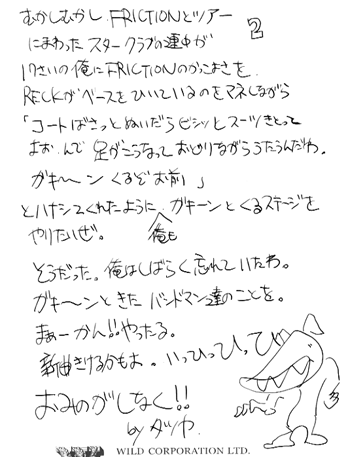 むかしむかし FRICTIONとツアー
にまわった スタークラブの連中が
17さいの俺にFRICTIONのかっこよさを
RECKがベースをひいているのをマネしながら
「コートばさっとぬいだらビシッとスーツきとって
よお んで 足がこうなって おどりながらうたうんだわ。
ガキ〜ン くるぞお前」
とハナシてくれたように 俺も ガキーンとくるステージを
やりたいぜ。
そうだった。俺はしばらく忘れていたわ。
ガキ〜ンときた バンドマン達のことを。
まぁーかん!!やったる。
新曲きけるかもよ。いっひっひっひ
おみのがしなく!!
by タツヤ.
WILD CORPORATION LTD.